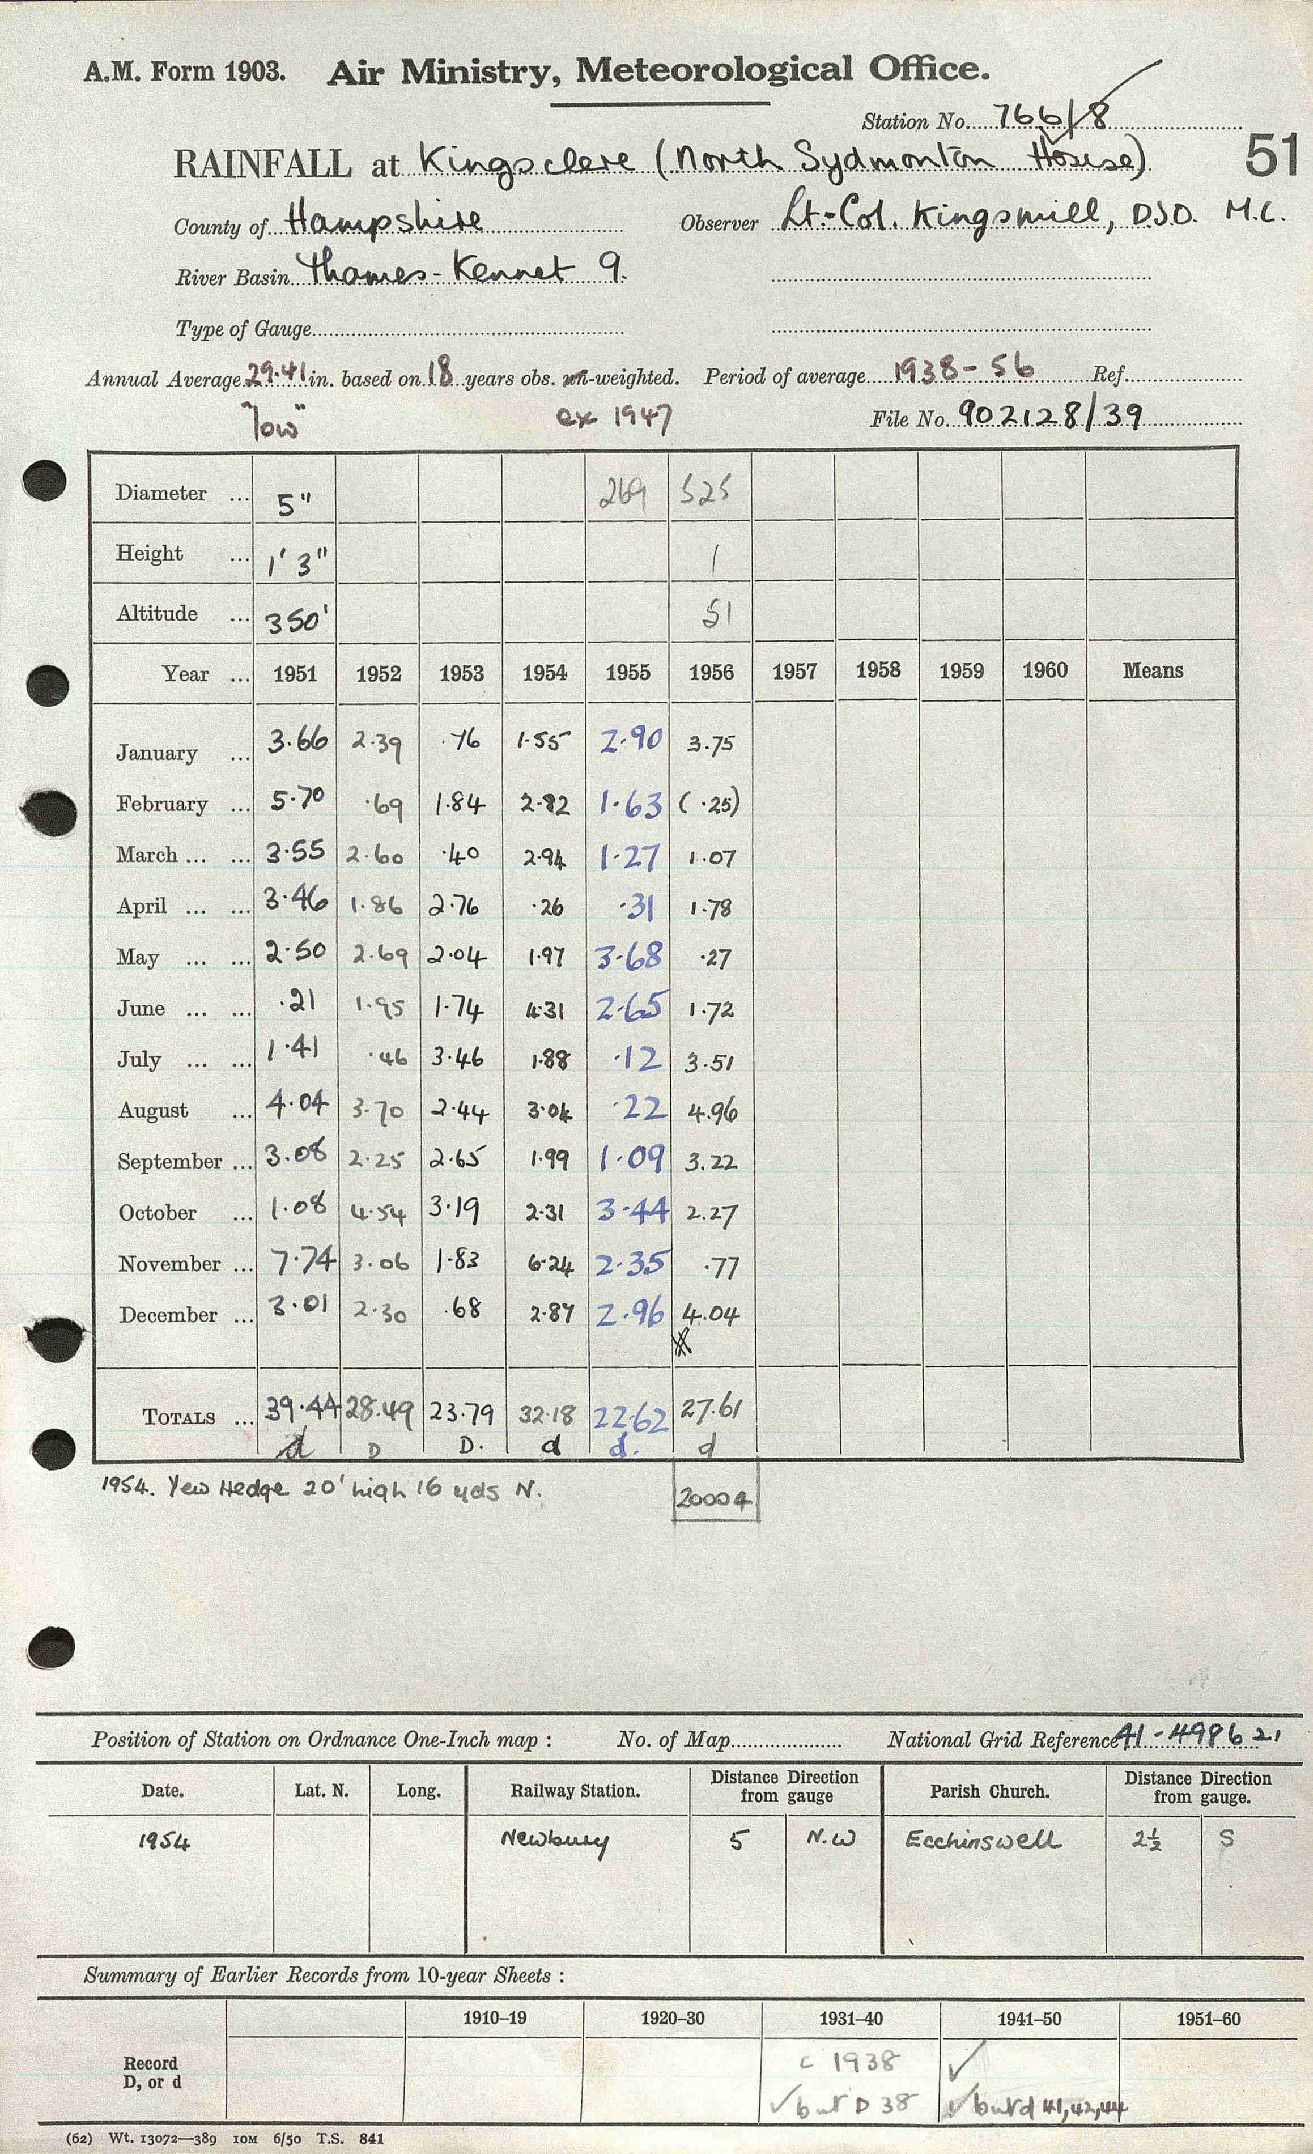 A.M. Form 1903. Air Ministry, Meteorological Office.
Station No. 766/8
RAINFALL at Kingsclere (North Sydmonton House) 51
County of Hampshire Observer Lt.-Col. Kingsmill, D.S.O. M.C.
River Basin Thames-Kennet 9.
Type of Gauge
Annual Average 29.41 in. based on 18 years obs. un-weighted. Period of average 1938-56 Ref.
"low" ex 1947 File No. 902128/39
Diameter ... 5" 269 525
Height ... 1' 3" 1
Altitude ... 350' 51
Year ... 1951 1952 1953 1954 1955 1956 1957 1958 1959 1960 Means
January ... 3.66 2.39 .76 1.55 2.90 3.75
February ... 5.70 .69 1.84 2.82 1.63 (.25)
March ... ... 3.55 2.60 .40 2.94 1.27 1.07
April ... ... 3.46 1.86 2.76 .26 .31 1.78
May ... ... 2.50 2.69 2.04 1.97 3.68 .27
June ... ... .21 1.95 1.74 4.31 2.65 1.72
July ... ... 1.41 .46 3.46 1.88 .12 3.51
August ... 4.04 3.70 2.44 3.04 .22 4.96
September ... 3.08 2.25 2.65 1.99 1.09 3.22
October ... 1.08 4.54 3.19 2.31 3.44 2.27
November ... 7.74 3.06 1.83 6.24 2.35 .77
December ... 3.01 2.30 .68 2.87 2.96 4.04
TOTALS ... 39.44 28.49 23.79 32.18 22.62 27.61
d D D. d d. d
1954. Yew Hedge 20' high 16 yds N. 20004
Position of Station on Ordnance One-Inch map : No. of Map National Grid Reference 41-498621
Date. Lat. N. Long. Railway Station. Distance from gauge Direction Parish Church. Distance from gauge. Direction
1954 Newbury 5 N.W Ecchinswell 2½ S
Summary of Earlier Records from 10-year Sheets :
1910–19 1920–30 1931–40 1941–50 1951–60
Record c 1938 ✓
D, or d ✓ but D 38 ✓ but d 41,42,44
(62) Wt. 13072—389 10M 6/50 T.S. 841